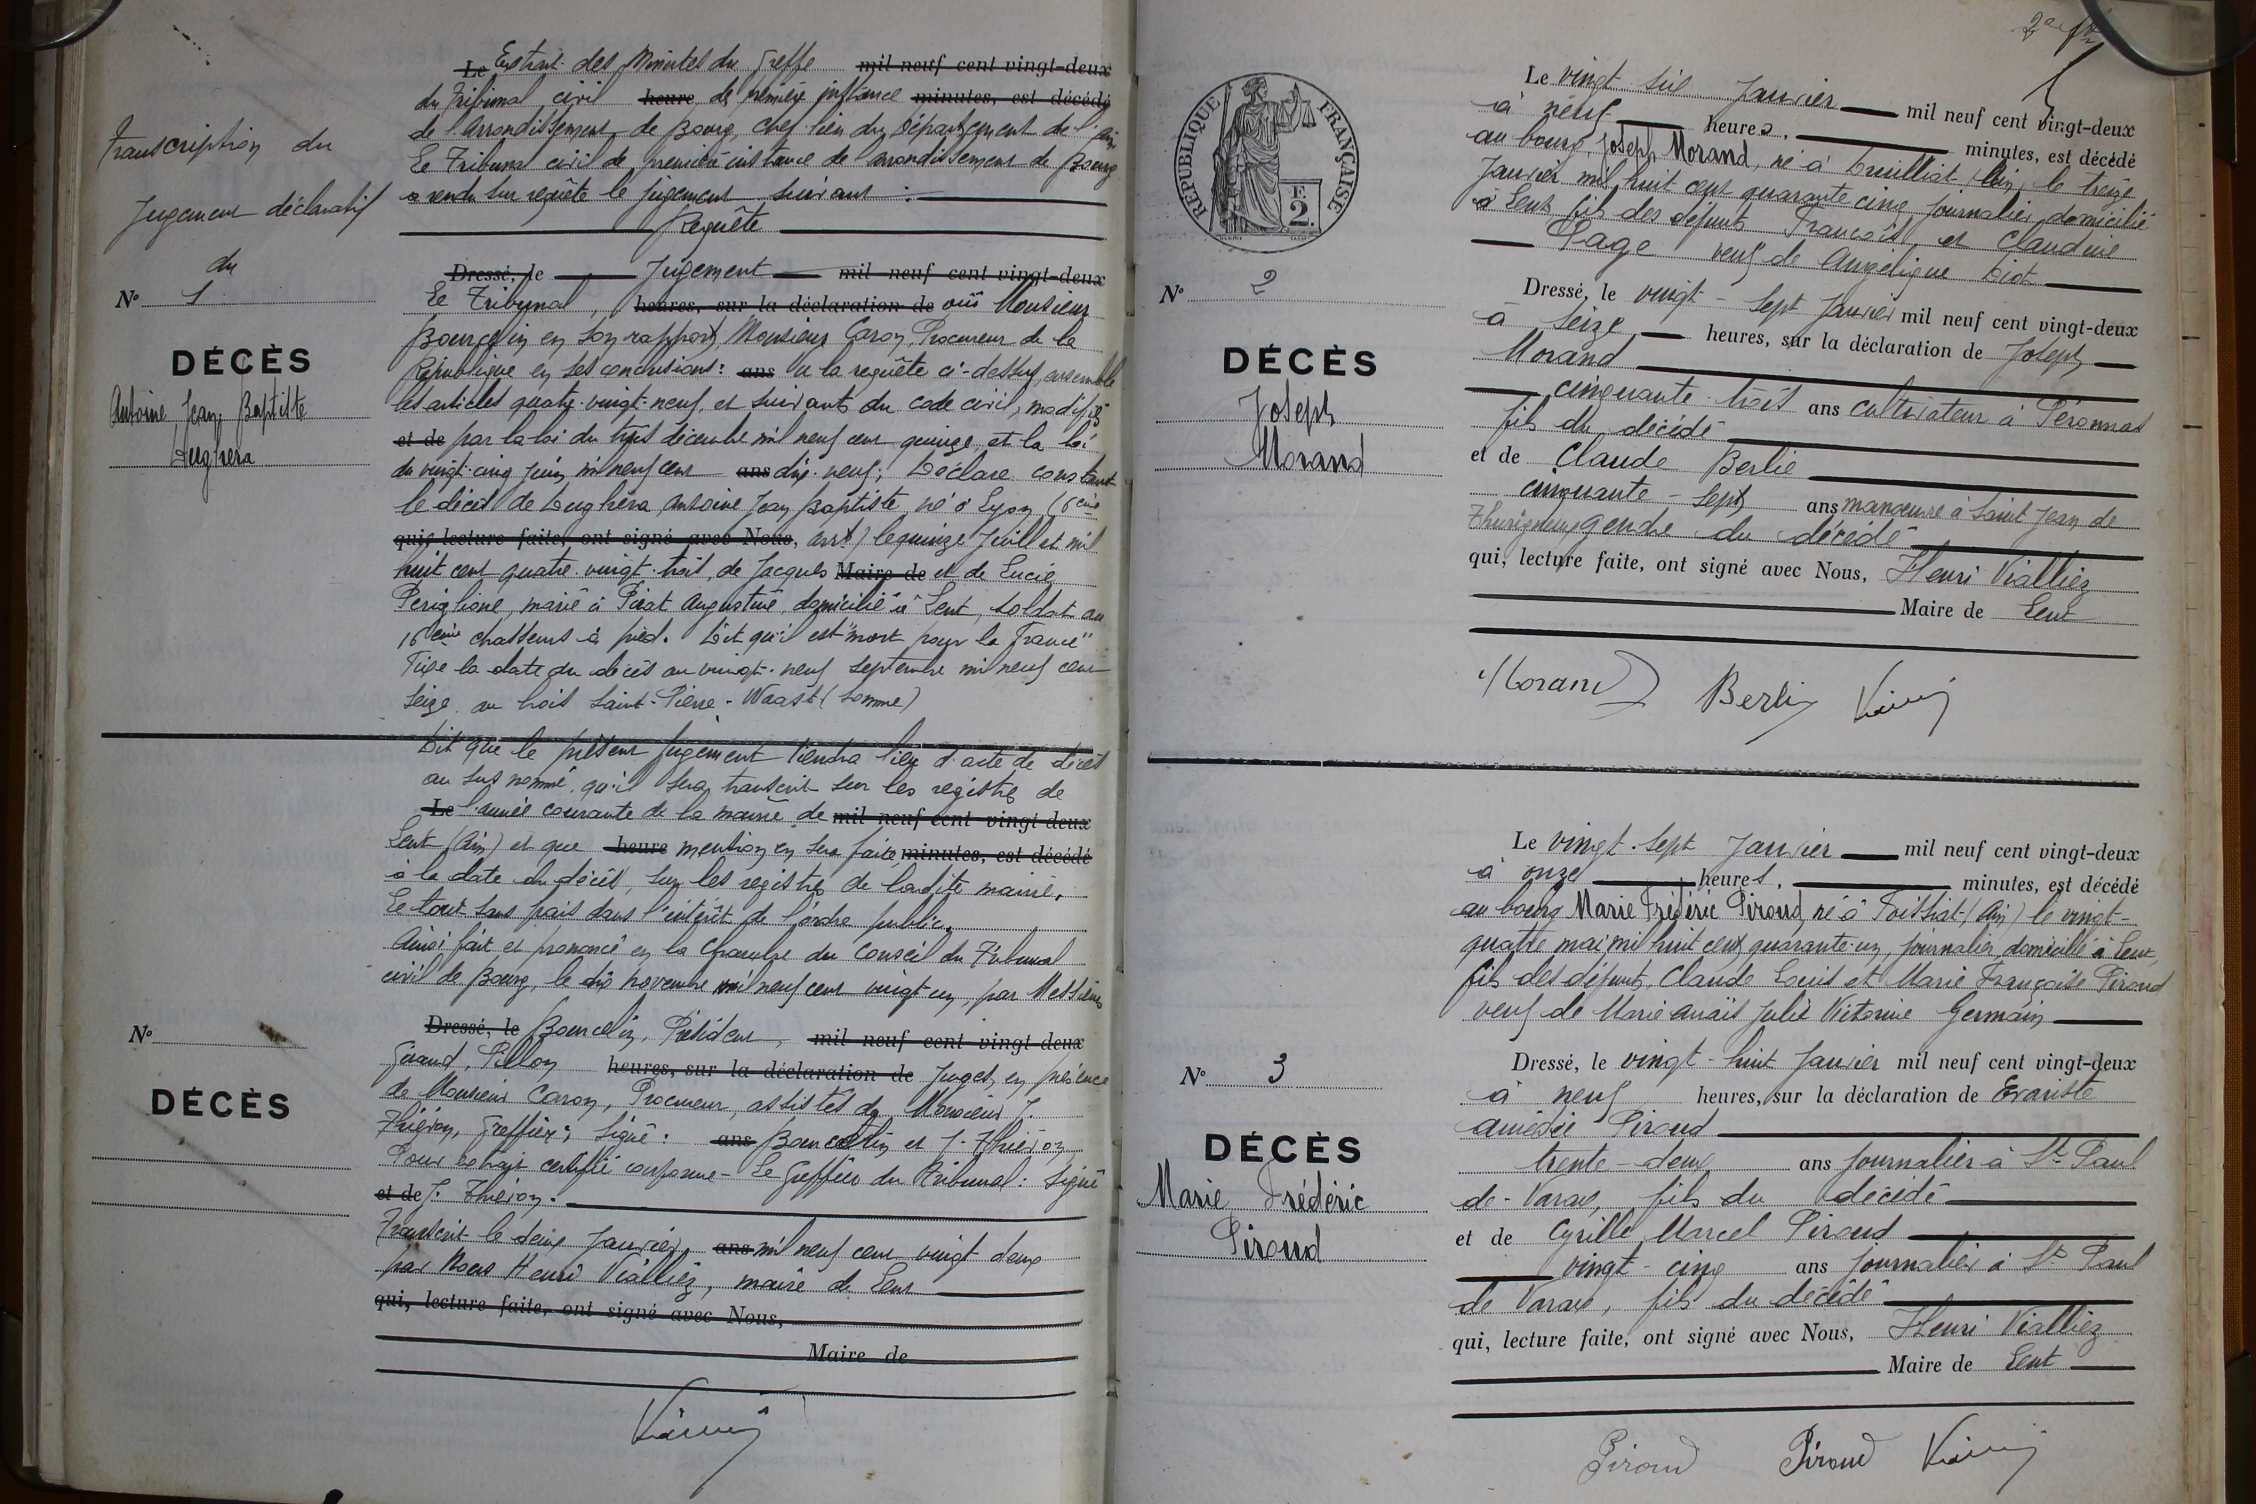 Transcription du
Jugement déclaratif
du
N° 1
DÉCÈS
Antoine Jean Baptiste
Lughera
Le Extrait des Minutes du Greffe mil neuf cent vingt-deux
du Tribunal civil heure de première instance minutes, est décédé
de l'arrondissement de Bourg, chef lieu du Département de l'Ain
Le Tribunal civil de première instance de l'arrondissement de Bourg
a rendu sur requête le jugement suivant :
Requête
Dressé, le Jugement mil neuf cent vingt-deux
Le Tribunal, heures, sur la déclaration de ouï Monsieur
Bourcelin en son rapport, Monsieur Caron Procureur de la
République en ses conclusions : ans Vu la requête ci-dessus, ensemble
les articles quatre-vingt-neuf et suivants du code civil, modifiés
et de par la loi du trois décembre mil neuf cent quinze et la loi
du vingt-cinq juin mil neuf cent ans dix-neuf ; Déclare constant
le décès de Lughera, Antoine Jean Baptiste, né à Lyon (6ème
qui, lecture faite, ont signé avec Nous, arrt) le quinze juillet mil
huit cent quatre-vingt-trois, de Jacques Maire de et de Lucie
Periglione, marié à Pirat Augustine, domicilié à Lent, soldat au
16ème chasseurs à pied. Dit qu'il est "mort pour la France"
Fixe la date du décès au vingt-neuf septembre mil neuf cent
seize au bois Saint-Pierre-Waast (Somme)
Dit que le présent jugement tiendra lieu d'acte de décès
au sus nommé, qu'il sera transcrit sur les registres de
Le l'année courante de la mairie de mil neuf cent vingt-deux
Lent (Ain) et que heure mention en sera faite minutes, est décédé
à la date du décès, sur les registres de ladite mairie.
Le tout sans frais dans l'intérêt de l'ordre public.
Ainsi fait et prononcé en la Chambre du Conseil du Tribunal
civil de Bourg, le dix novembre mil neuf cent vingt un, par Messieurs
N°
DÉCÈS
Dressé, le Bourcelin, Président, mil neuf cent vingt-deux
Giraud, Pillon heures, sur la déclaration de Juges, en présence
de Monsieur Caron, Procureur, assistés de Monsieur J.
Thiéron, Greffier ; Signé : ans Bourcelin et J. Thiéron
Pour extrait certifié conforme - Le Greffier du Tribunal : Signé
et de J. Thiéron.
Transcrit le seize Janvier ans mil neuf cent vingt deux
par Nous Henri Vialliez, maire de Lent
qui, lecture faite, ont signé avec Nous,
Maire de
2
RÉPUBLIQUE FRANÇAISE
F.
2.
N° 2
DÉCÈS
Joseph
Morand
Le vingt six Janvier mil neuf cent vingt-deux
à neuf heures, minutes, est décédé
au bourg, Joseph Morand, né à Druilliat (Ain) le treize
Janvier mil huit cent quarante cinq, journalier, domicilié
à Lent fils des défunts François, et Claudine
Page veuf de Angelique Liot
Dressé, le vingt-sept Janvier mil neuf cent vingt-deux
à seize heures, sur la déclaration de Joseph
Morand
cinquante-trois ans cultivateur à Péronnas
fils du décédé
et de Claude Berlie
cinquante-sept ans manœuvre à Saint Jean de
Thurigneux gendre du décédé
qui, lecture faite, ont signé avec Nous, Henri Vialliez
Maire de Lent
Morand
N° 3
DÉCÈS
Marie Frédéric
Piroud
Le vingt-sept Janvier mil neuf cent vingt-deux
à onze heures, minutes, est décédé
au bourg Marie Frédéric Piroud, né à Foissiat (Ain) le vingt-
quatre mai mil huit cent quarante-un, journalier, domicilié à Lent,
fils des défunts, Claude Louis et Marie Françoise Piroud
veuf de Marie Anaïs Julie Victorine Germain
Dressé, le vingt-huit Janvier mil neuf cent vingt-deux
à neuf heures, sur la déclaration de Evariste
Amédée Piroud
trente-deux ans journalier à St Paul
de-Varax, fils du décédé
et de Cyrille Marcel Piroud
vingt-cinq ans journalier à St Paul
de Varax, fils du décédé
qui, lecture faite, ont signé avec Nous, Henri Vialliez
Maire de Lent
Piroud Piroud